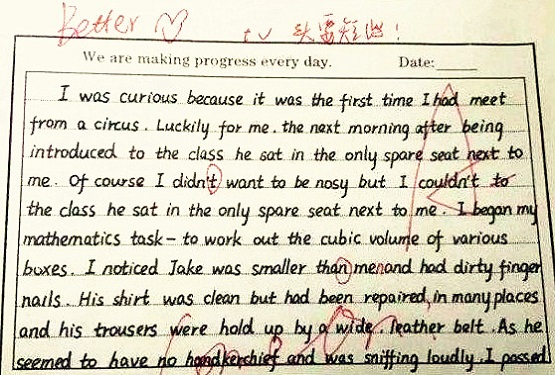 Better
We are making progress every day. Date:
I was curious because it was the first time I had meet
from a circus. Luckily for me. the next morning after being
introduced to the class he sat in the only spare seat next to
me. Of course I didn't want to be nosy but I couldn't to
the class he sat in the only spare seat next to me. I began my
mathematics task- to work out the cubic volume of various
boxes. I noticed Jake was smaller than menand had dirty finger
nails. His shirt was clean but had been repaired, in many places
and his trousers were hold up by a wide. leather belt. As he
seemed to have no handkerchief and was sniffing loudly. I passed